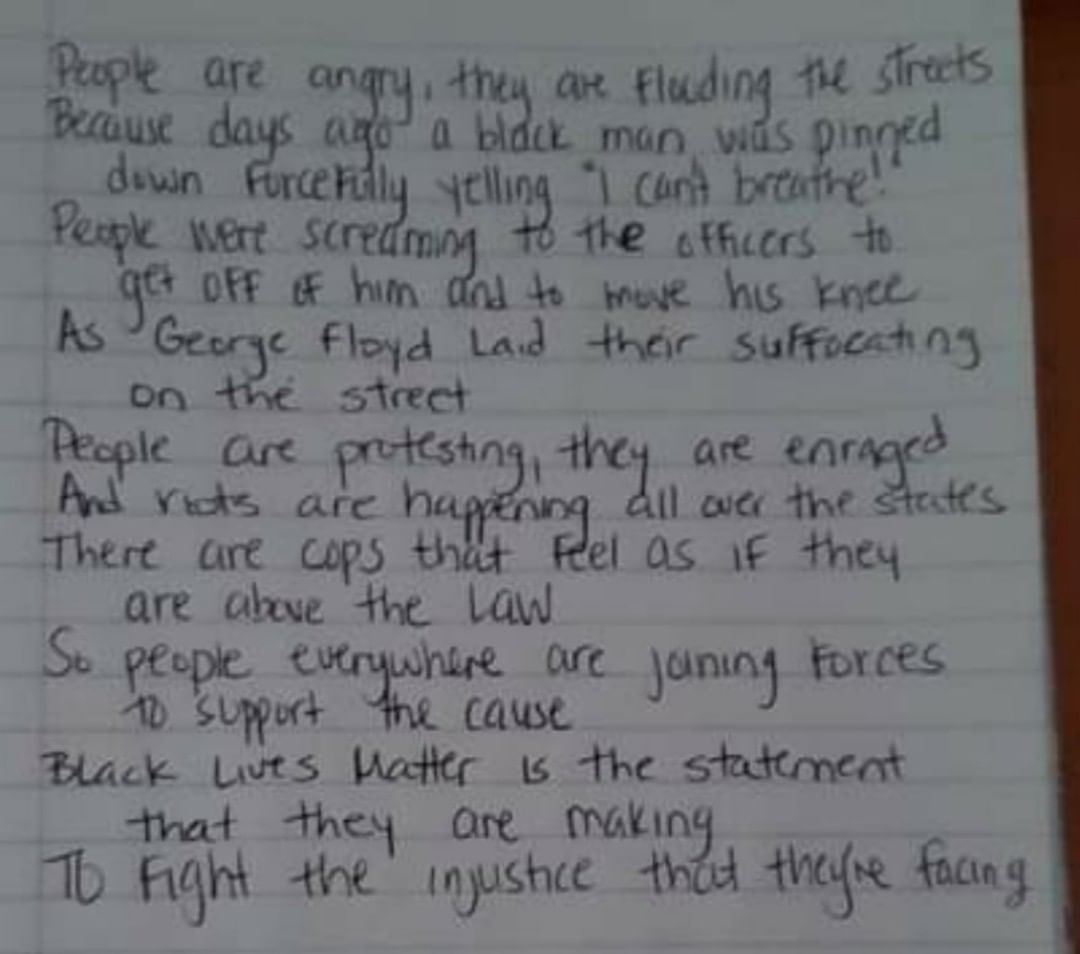 People are angry, they are fluding the streets
Because days ago a black man was pinned
down forcefully yelling "I can't breathe!"
People were screaming to the officers to
get off of him and to move his knee
As George Floyd Laid their suffocating
on the street
People are protesting, they are enraged
And riots are happening all over the states
There are cops that feel as if they
are above the Law
So people everywhere are joining forces
To support the cause
Black Lives Matter is the statement
that they are making
To Fight the injustice that they're facing